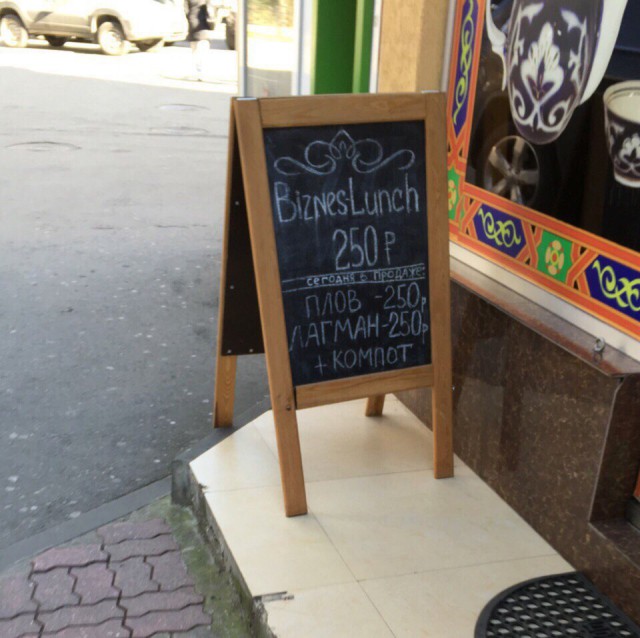 Biznes-Lunch
250 ₽
сегодня в продаже
ПЛОВ -250₽
ЛАГМАН-250₽
+ КОМПОТ